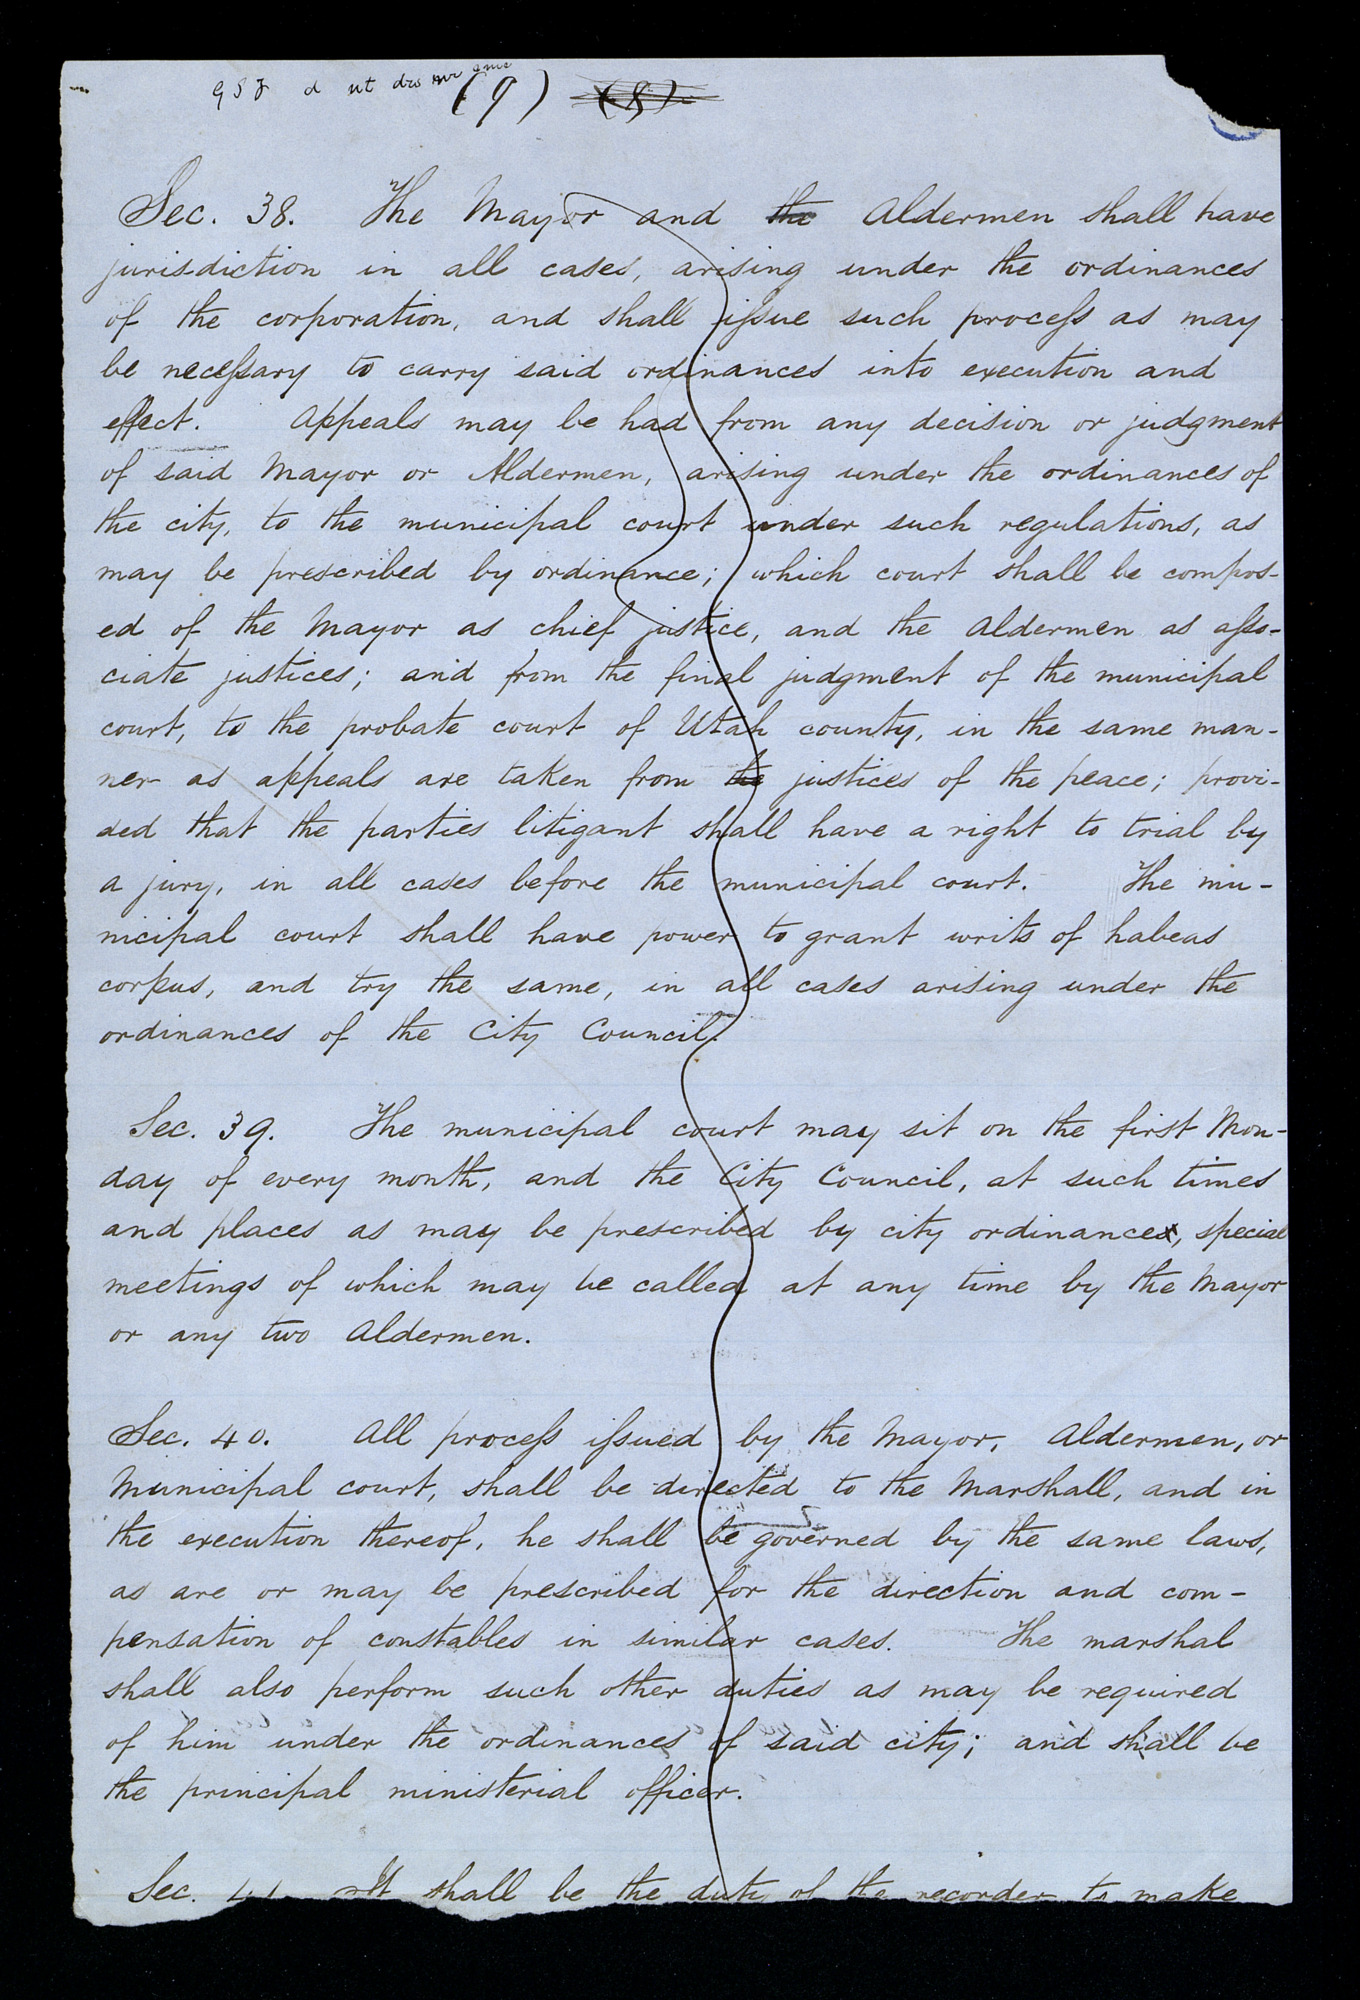 (9) (8)
Sec. 38. The Mayor and the Aldermen shall have
jurisdiction in all cases, arising under the ordinances
of the corporation, and shall issue such process as may
be necessary to carry said ordinances into execution and
effect. Appeals may be had from any decision or judgment
of said Mayor or Aldermen, arising under the ordinances of
the city, to the municipal court under such regulations, as
may be prescribed by ordinance; which court shall be compos-
ed of the Mayor as chief justice, and the Aldermen as asso-
ciate justices; and from the final judgment of the municipal
court, to the probate court of Utah county, in the same man-
ner as appeals are taken from the justices of the peace; provi-
ded that the parties litigant shall have a right to trial by
a jury, in all cases before the municipal court. The mu-
nicipal court shall have power to grant writs of habeas
corpus, and try the same, in all cases arising under the
ordinances of the City Council.
Sec. 39. The municipal court may sit on the first Mon-
day of every month, and the City Council, at such times
and places as may be prescribed by city ordinances, special
meetings of which may be called at any time by the Mayor
or any two Aldermen.
Sec. 40. All process issued by the Mayor, Aldermen, or
Municipal court, shall be directed to the Marshall, and in
the execution thereof, he shall be governed by the same laws,
as are or may be prescribed for the direction and com-
pensation of constables in similar cases. The marshal
shall also perform such other duties as may be required
of him under the ordinances of said city; and shall be
the principal ministerial officer.
Sec. 41 It shall be the duty of the recorder to make